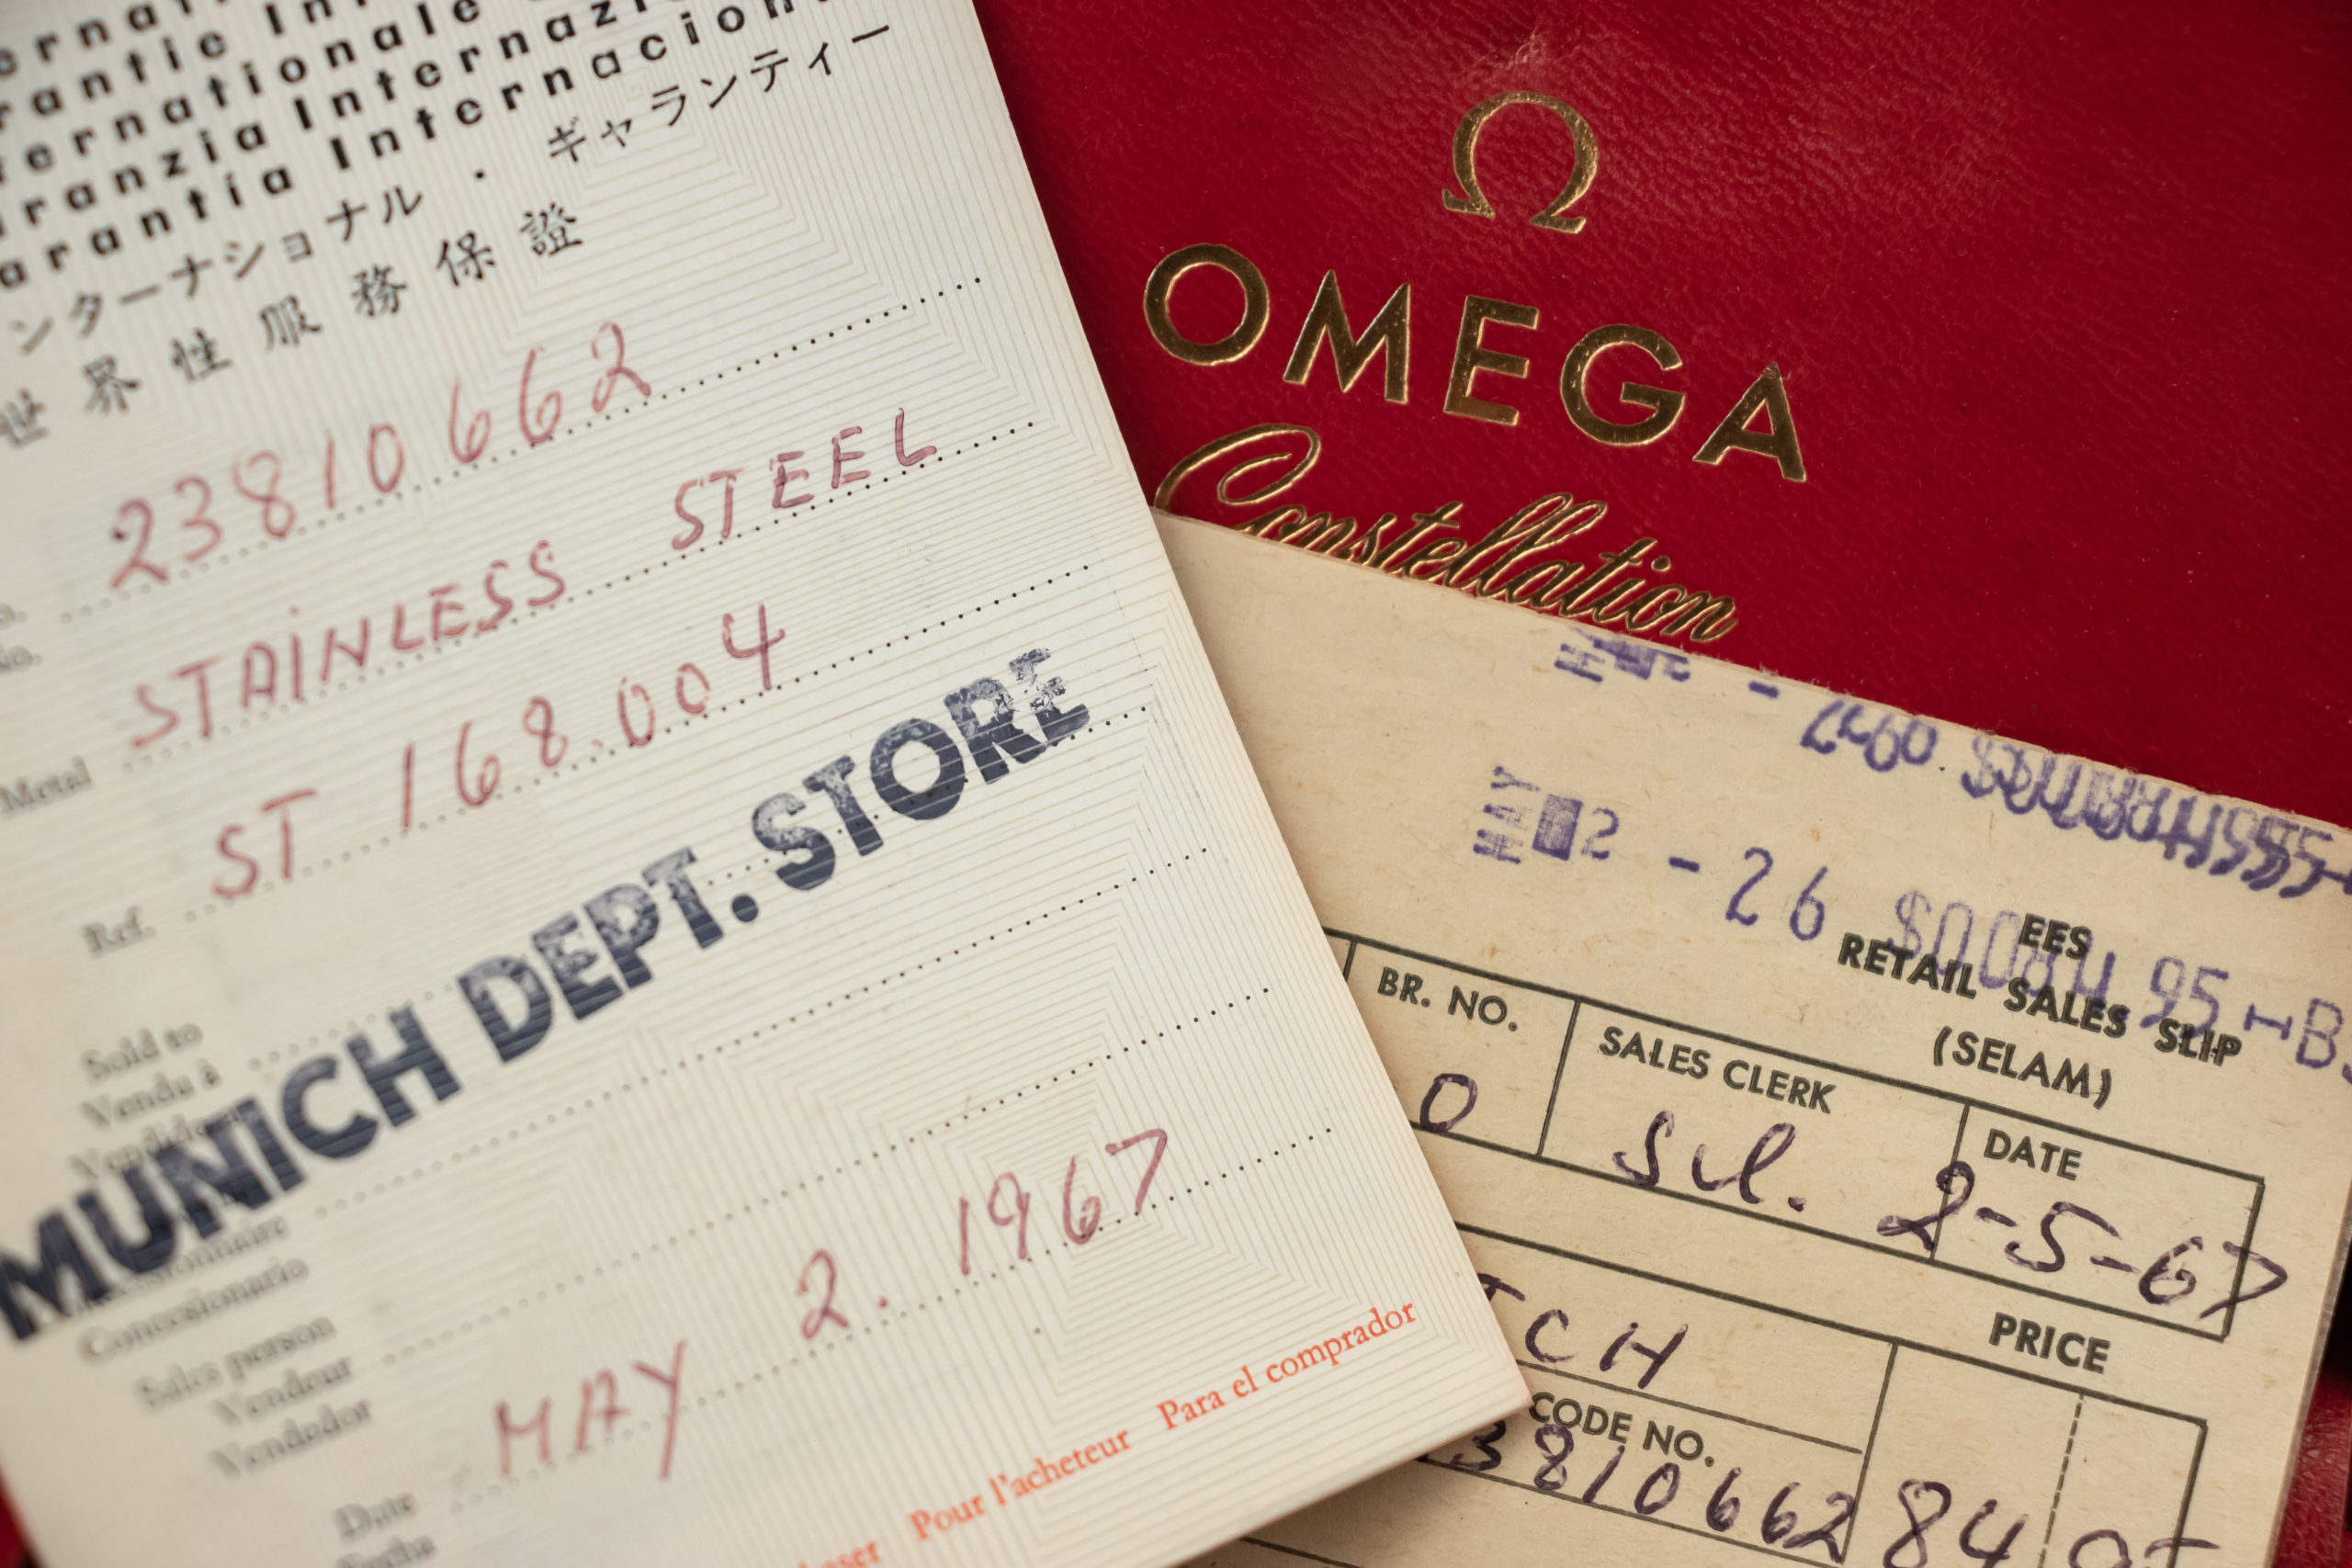 Internacional
ンターナショナル・ギャランティー
世界性服務保證
23810662
No.
STAINLESS STEEL
Metal
ST 168.004
Ref.
MUNICH DEPT. STORE
Sold to
Vendu à
Concesionario
Sales person
Vendeur
Vendedor
MAY 2. 1967
Date
Fecha
Pour l'acheteur Para el comprador
Ω
OMEGA
Constellation
MAY 2 -26 $0084 95
EES
RETAIL SALES SLIP
(SELAM)
BR. NO.
SALES CLERK
DATE
0
2-5-67
TCH
PRICE
CODE NO.
3810662
84 95